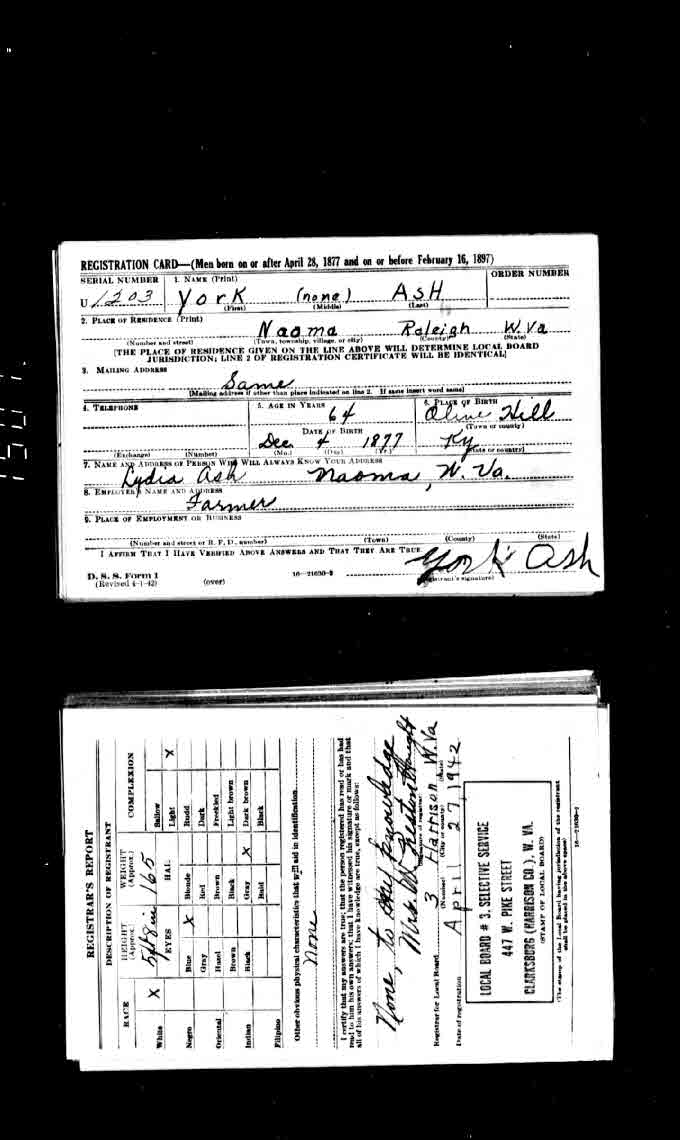 REGISTRATION CARD—(Men born on or after April 28, 1877 and on or before February 16, 1897)
SERIAL NUMBER 1. NAME (Print) ORDER NUMBER
U 1203 York (none) ASH
(First) (Middle) (Last)
2. PLACE OF RESIDENCE (Print)
Naoma Raleigh W.Va
(Number and street) (Town, township, village, or city) (County) (State)
[THE PLACE OF RESIDENCE GIVEN ON THE LINE ABOVE WILL DETERMINE LOCAL BOARD
JURISDICTION; LINE 2 OF REGISTRATION CERTIFICATE WILL BE IDENTICAL]
3. MAILING ADDRESS
Same
[Mailing address if other than place indicated on line 2. If same insert word same]
4. TELEPHONE 5. AGE IN YEARS 6. PLACE OF BIRTH
64 Olive Hill
DATE OF BIRTH (Town or county)
Dec 4 1877 Ky
(Exchange) (Number) (Mo.) (Day) (Yr.) (State or country)
7. NAME AND ADDRESS OF PERSON WHO WILL ALWAYS KNOW YOUR ADDRESS
Lydia Ash Naoma, W. Va.
8. EMPLOYER'S NAME AND ADDRESS
Farmer
9. PLACE OF EMPLOYMENT OR BUSINESS
(Number and street or R. F. D. number) (Town) (County) (State)
I AFFIRM THAT I HAVE VERIFIED ABOVE ANSWERS AND THAT THEY ARE TRUE
York Ash
D. S. S. Form 1
(Revised 4-1-42) (over) 16—21630-2 (Registrant's signature)
REGISTRAR'S REPORT
DESCRIPTION OF REGISTRANT
RACE HEIGHT (Approx.) WEIGHT (Approx.) COMPLEXION
White X 5ft 8 in 165 Sallow
EYES HAIR Light X
Negro Blue X Blonde Ruddy
Gray Red Dark
Oriental Hazel Brown Freckled
Brown Black Light brown
Indian Black Gray X Dark brown
Bald Black
Filipino
Other obvious physical characteristics that will aid in identification
None
I certify that my answers are true; that the person registered has read or has had
read to him his own answers; that I have witnessed his signature or mark and that
all of his answers of which I have knowledge are true, except as follows:
None, to my knowledge
Mrs. W.
(Signature of registrar)
Registrar for Local Board 3 Harrison W.Va
(Number) (City or county) (State)
Date of registration April 27, 1942
LOCAL BOARD # 3, SELECTIVE SERVICE
447 W. PIKE STREET
CLARKSBURG (HARRISON CO.), W. VA.
(STAMP OF LOCAL BOARD)
(The stamp of the Local Board having jurisdiction of the registrant
shall be placed in the above space)
16—21630-2